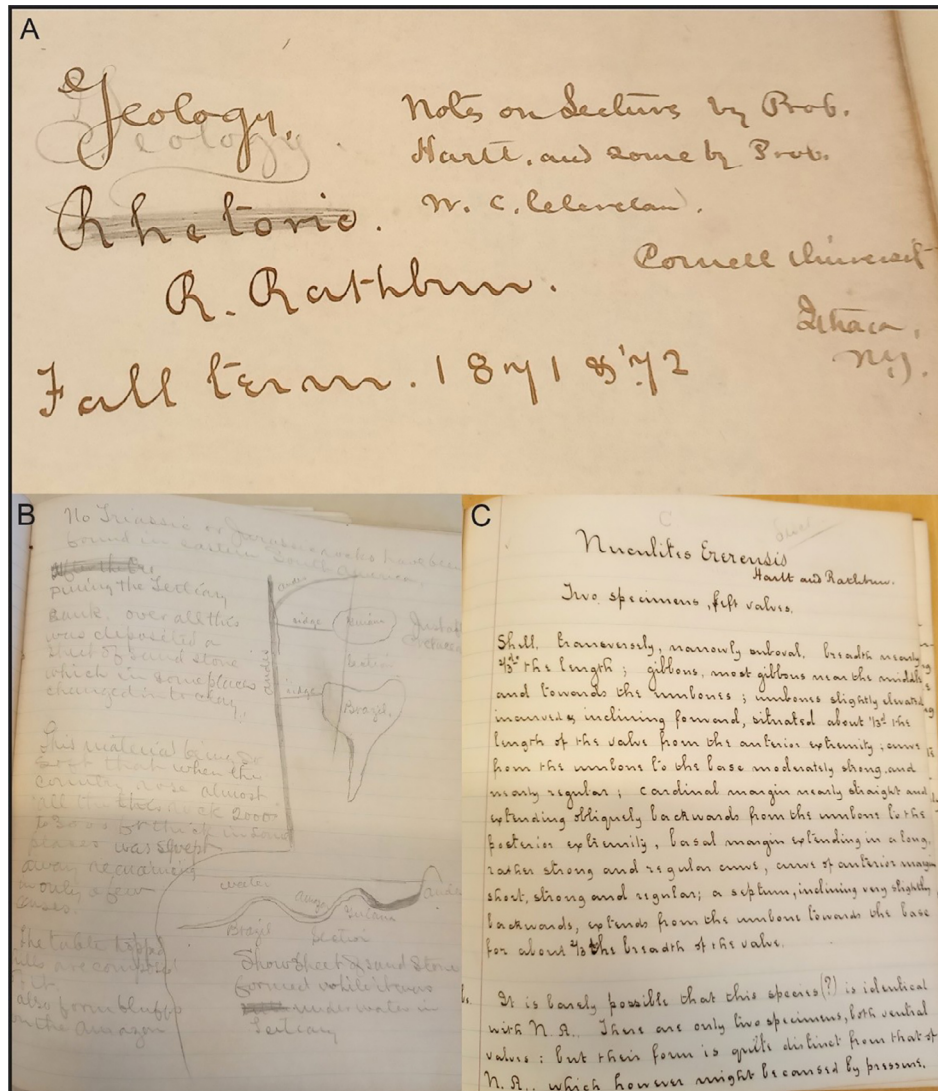 A
Geology.
Geology
Rhetoric.
R. Rathbun.
Fall term. 1871 & '72
Notes on Lectures by Prof.
Hartt. and some by Prof.
W. C. Cleveland.
Cornell Universit
Ithaca,
NY.
B
No Triassic or Jurassic rocks have been
found in eastern South America
During the Tertiary
bank. over all this
was deposited a
sheet of sand stone
which in some places
changed into clay
This material being so
soft that when the
country rose almost
all the thick 2000
to 3000 ft thick in some
places was swept
away remaining
in only a few
cases.
The table topped
hills are composed
of it
also form bluffs
on the Amazon
Andes
ridge
Guiana
ridge
Brazil.
section
water
Brazil
Guiana
Section
Show sheet of sand stone
formed while it was
under water in
Tertiary
C
Nuculites Ererensis
Hartt and Rathbun.
Two specimens, left valves.
Shell transversely, narrowly suboval, breadth nearly
2/3rds the length; gibbous, most gibbous near the middle
and towards the umbones; umbones slightly elevated
incurved & inclining forward, situated about 1/3rd the
length of the valve from the anterior extremity; curve
from the umbone to the base moderately strong and
nearly regular; cardinal margin nearly straight and
extending obliquely backwards from the umbone to the
posterior extremity, basal margin extending in a long,
rather strong and regular curve, curve of anterior margin
short, strong and regular; a septum, inclining very slightly
backwards, extends from the umbone towards the base
for about 2/3 the breadth of the valve.
It is barely possible that this species (?) is identical
with N. A. There are only two specimens, both ventral
valves: but their form is quite distinct from that of
N. A., which however might be caused by pressure.